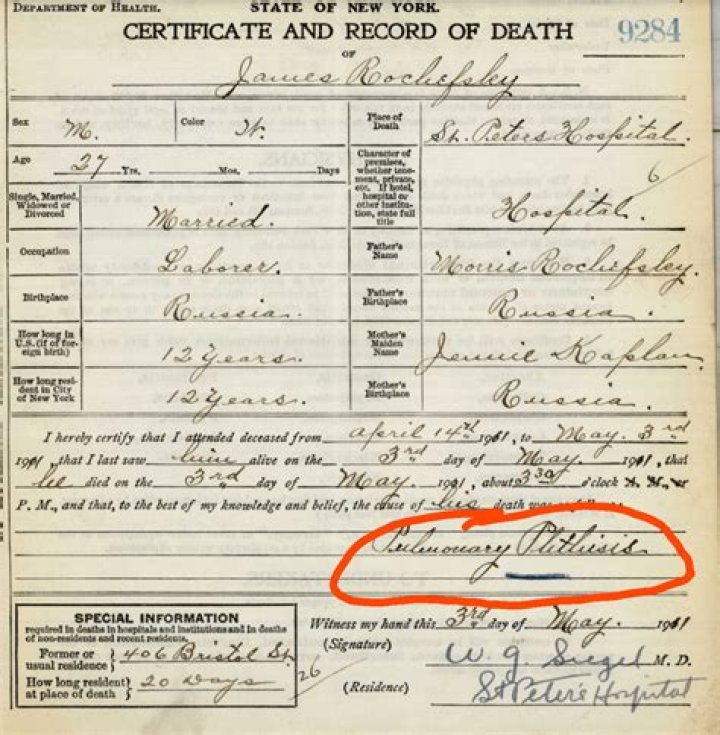 DEPARTMENT OF HEALTH. STATE OF NEW YORK.
CERTIFICATE AND RECORD OF DEATH 9284
OF
James Rochefsley
Sex M. Color W. Place of Death St. Peters Hospital.
Age 27 Yrs. Mos. Days
Character of premises, whether tenement, private, etc. If hotel, hospital or other institution, state full title Hospital. 6
Single, Married, Widowed or Divorced Married.
Occupation Laborer. Father's Name Morris Rochefsley.
Birthplace Russia. Father's Birthplace Russia.
How long in U.S. (if of foreign birth) 12 years. Mother's Maiden Name Jennie Kaplan.
How long resident in City of New York 12 Years. Mother's Birthplace Russia.
I hereby certify that I attended deceased from April 14th 1911, to May. 3rd
1911 that I last saw him alive on the 3rd day of May. 1911, that
he died on the 3rd day of May 1911, about 3 30 o'clock A. M., or
P. M., and that, to the best of my knowledge and belief, the cause of his death was
Pulmonary Phthisis
SPECIAL INFORMATION
required in deaths in hospitals and institutions and in deaths
of non-residents and recent residents.
Former or usual residence } 406 Bristol St.
How long resident at place of death } 20 Days 26
Witness my hand this 3rd day of May. 1911
(Signature) W. G. Siegel M. D.
(Residence) St Peter's Hospital